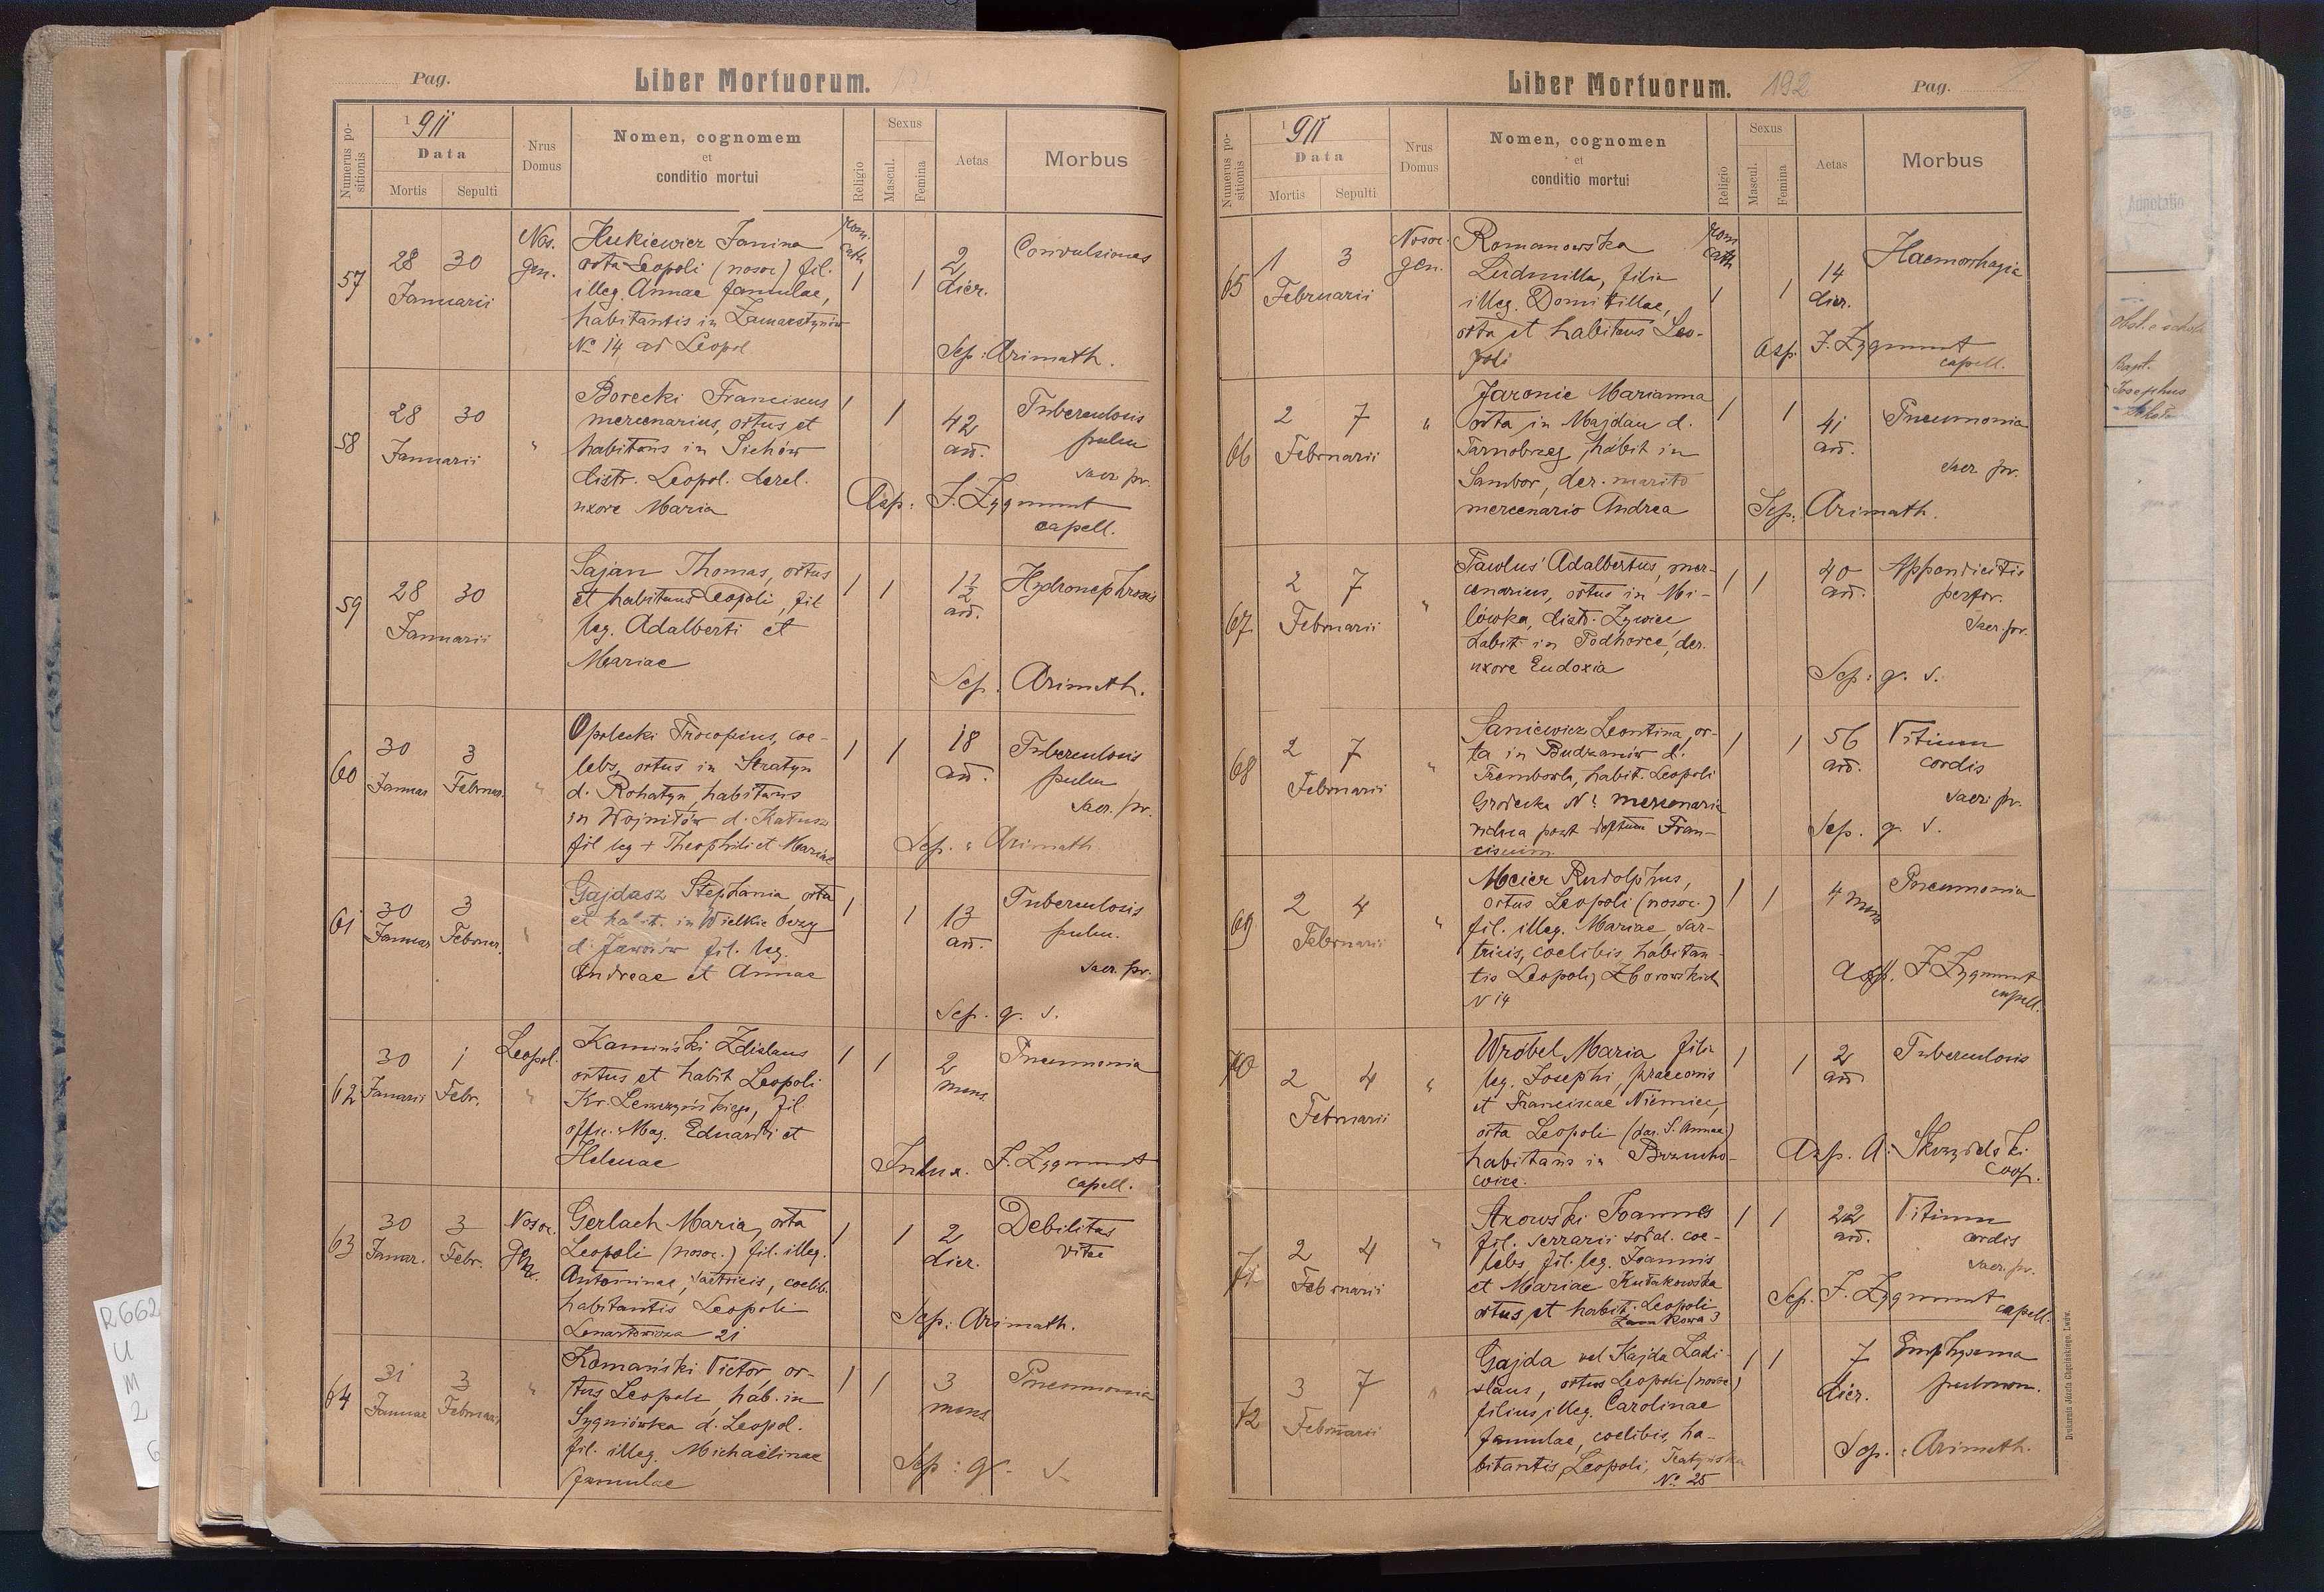 Pag.
Liber Mortuorum.
Numerus positionis
1911
Data
Mortis
Sepulti
Nrus Domus
Nomen, cognomem
et
conditio mortui
Religio
Sexus
Mascul.
Femina
Aetas
Morbus
57
28 30
Januarii
Nos.
gen.
Hukiewicz Janina
orta Leopoli (nosoc) fil.
illeg. Annae famulae,
habitantis in Zamarstynów
No 14 ad Leopol
rom.
cath
1
1
2
dier.
Convulsiones
Sep: Arimath.
58
28 30
Januarii
"
Borecki Franciscus
mercenarius, ortus et
habitans in Sichów
distr. Leopol. derel.
uxore Maria
1
1
42
an.
Tuberculosis
pulm
sacr. pr.
Asp: F. Zygmunt
capell.
59
28 30
Januarii
"
Sajan Thomas, ortus
et habitans Leopoli, fil
leg. Adalberti et
Mariae
1
1
1 1/2
an.
Hydronephrosis
Sep. Arimath.
60
30 3
Januar Februar.
"
Opolecki Procopius, coe-
lebs, ortus in Stratyn
d. Rohatyn, habitans
in Wojniłów d. Kałusz
fil leg + Theophili et Mariae
1
1
18
an.
Tuberculosis
pulm
sacr. pr.
Sep. : Arimath.
61
30 3
Januar Februar.
"
Gajdasz Stephania, orta
et habit. in Wielkie Oczy
d. Jaworów fil. leg.
Andreae et Annae
1
1
13
an.
Tuberculosis
pulm.
sacr. pr.
Sep. g. s.
62
30 1
Januarii Febr.
Leopol.
"
Kamiński Zdislaus
ortus et habit Leopoli
Kr. Leszczyńskiego, fil.
offic. Mag. Eduardi et
Helenae
1
1
2
mens.
Pneumonia
Indux. F. Zygmunt
capell.
63
30 3
Januar. Febr.
Nosoc.
gen.
Gerlach Maria, orta
Leopoli (nosoc.) fil. illeg.
Antoninae, sartricis, coelib.
habitantis Leopoli
Lenartowicza 21
1
1
2
dier.
Debilitas
vitae
Sep: Arimath.
64
31 3
Januar Februar
"
Komański Victor, or-
tus Leopoli, hab. in
Sygniówka d. Leopol.
fil. illeg. Michaëlinae
famulae
1
1
3
mens
Pneumonia
Sep: g. s.
Liber Mortuorum. 192
Pag.
Numerus positionis
1911
Data
Mortis
Sepulti
Nrus
Domus
Nomen, cognomen
et
conditio mortui
Religio
Sexus
Mascul.
Femina
Aetas
Morbus
65
1 3
Februarii
Nosoc.
gen.
Romanowska
Ludmilla, filia
illeg. Domitillae,
orta et habitans Leo-
poli
rom
cath
1
1
14
dier.
Haemorrhagia
Asp. F. Zygmunt
capell.
66
2 7
Februarii
"
Jaronic Marianna
orta in Majdan d.
Tarnobrzeg, habit in
Sambor, der. marito
mercenario Andrea
1
1
41
an.
Pneumonia
sacr pr.
Sep: Arimath.
67
2 7
Februarii
"
Pawlus Adalbertus, mer-
cenarius, ortus in Mi-
lówka, distr. Zywiec
habit. in Podhorce, der.
uxore Eudoxia
1
1
40
an.
Appendicitis
perfor.
Sacr. pr.
Sep: g. s.
68
2 7
Februarii
"
Saniewicz Leontina, or-
ta in Budzanów d.
Trembowla, habit. Leopoli
Grodecka No mercenaria
vidua post Fran-
ciscum.
1
1
56
an.
Vitium
cordis
sacr. pr.
Sep. g. s.
69
2 4
Februarii
"
Meier Rudolphus,
ortus Leopoli (nosoc.)
fil. illeg. Mariae, sar-
tricis, coelibis, habitan-
tis Leopoli, Zborowskich
N 14
1
1
4 mens
Pneumonia
Asp. F. Zygmunt
capell.
70
2 4
Februarii
"
Wróbel Maria filia
leg. Josephi, praeconis
et Franciscae Niemiec,
orta Leopoli (par. S. Annae)
habitans in Brzucho-
wice.
1
1
2
an
Tuberculosis
Asp. A.
coop.
71
2 4
Februarii
"
Axowski Joannes
fil. serrarii sodal. coe-
lebs, fil. leg. Joannis
et Mariae Kułakowska
ortus et habit. Leopoli
Zamkowa 3
1
1
22
an.
Vitium
cordis
sacr. pr.
Sep. F. Zygmunt
capell.
72
3 7
Februarii
"
Gajda vel Kajda Ladi-
slaus, ortus Leopoli (nosoc)
filius illeg. Carolinae
famulae, coelibis, ha-
bitantis Leopoli, Teatyńska
No 25
1
1
7
dier.
Emphysema
pulmon.
Sep.: Arimath.
Drukarnia Józefa Chęcińskiego, Lwów.
Annotatio
Bapt.
Josephus
R662
U
M
2